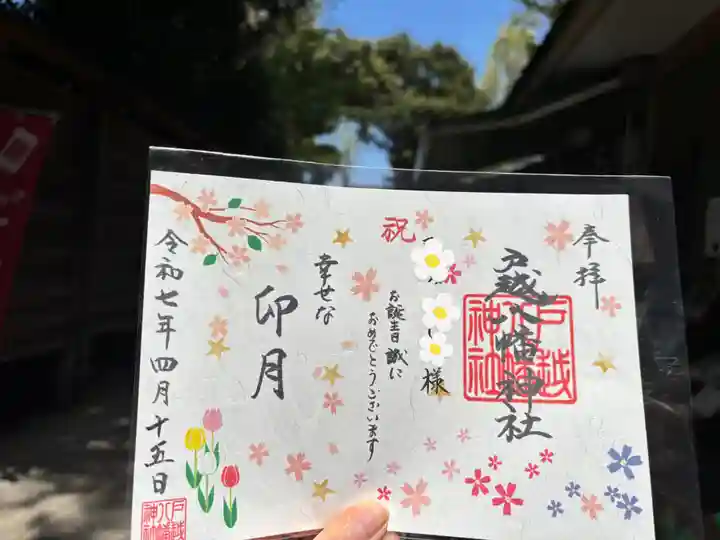 奉拝
戸越八幡神社
戸越八幡神社
祝
様
お誕生日誠に
おめでとうございます
幸せな
卯月
令和七年四月十五日
戸越八幡神社